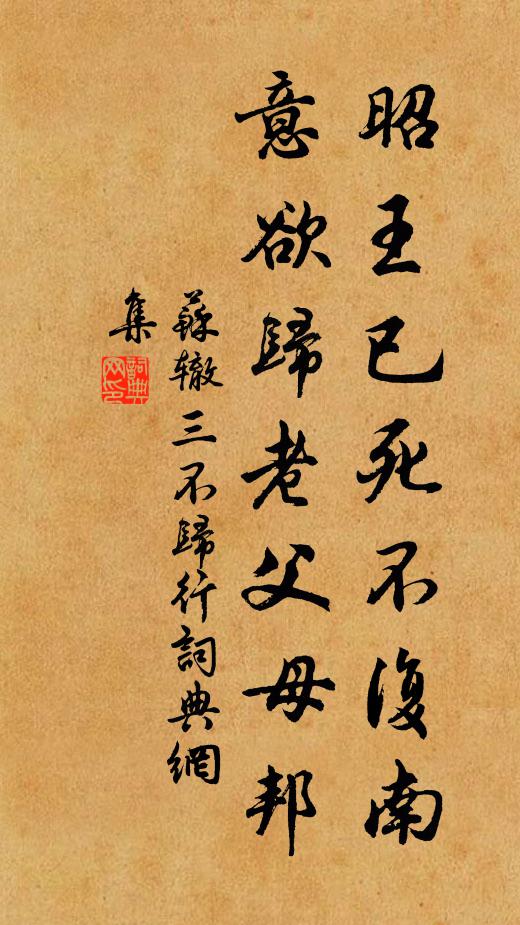 昭王已死不復南
意欲歸老父母邦
蘇轍三不歸行詞典網
集
詞典
网印